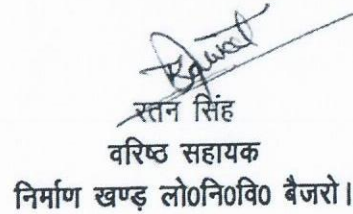 रतन सिंह
वरिष्ठ सहायक
निर्माण खण्ड़ लो0नि0वि0 बैजरो।